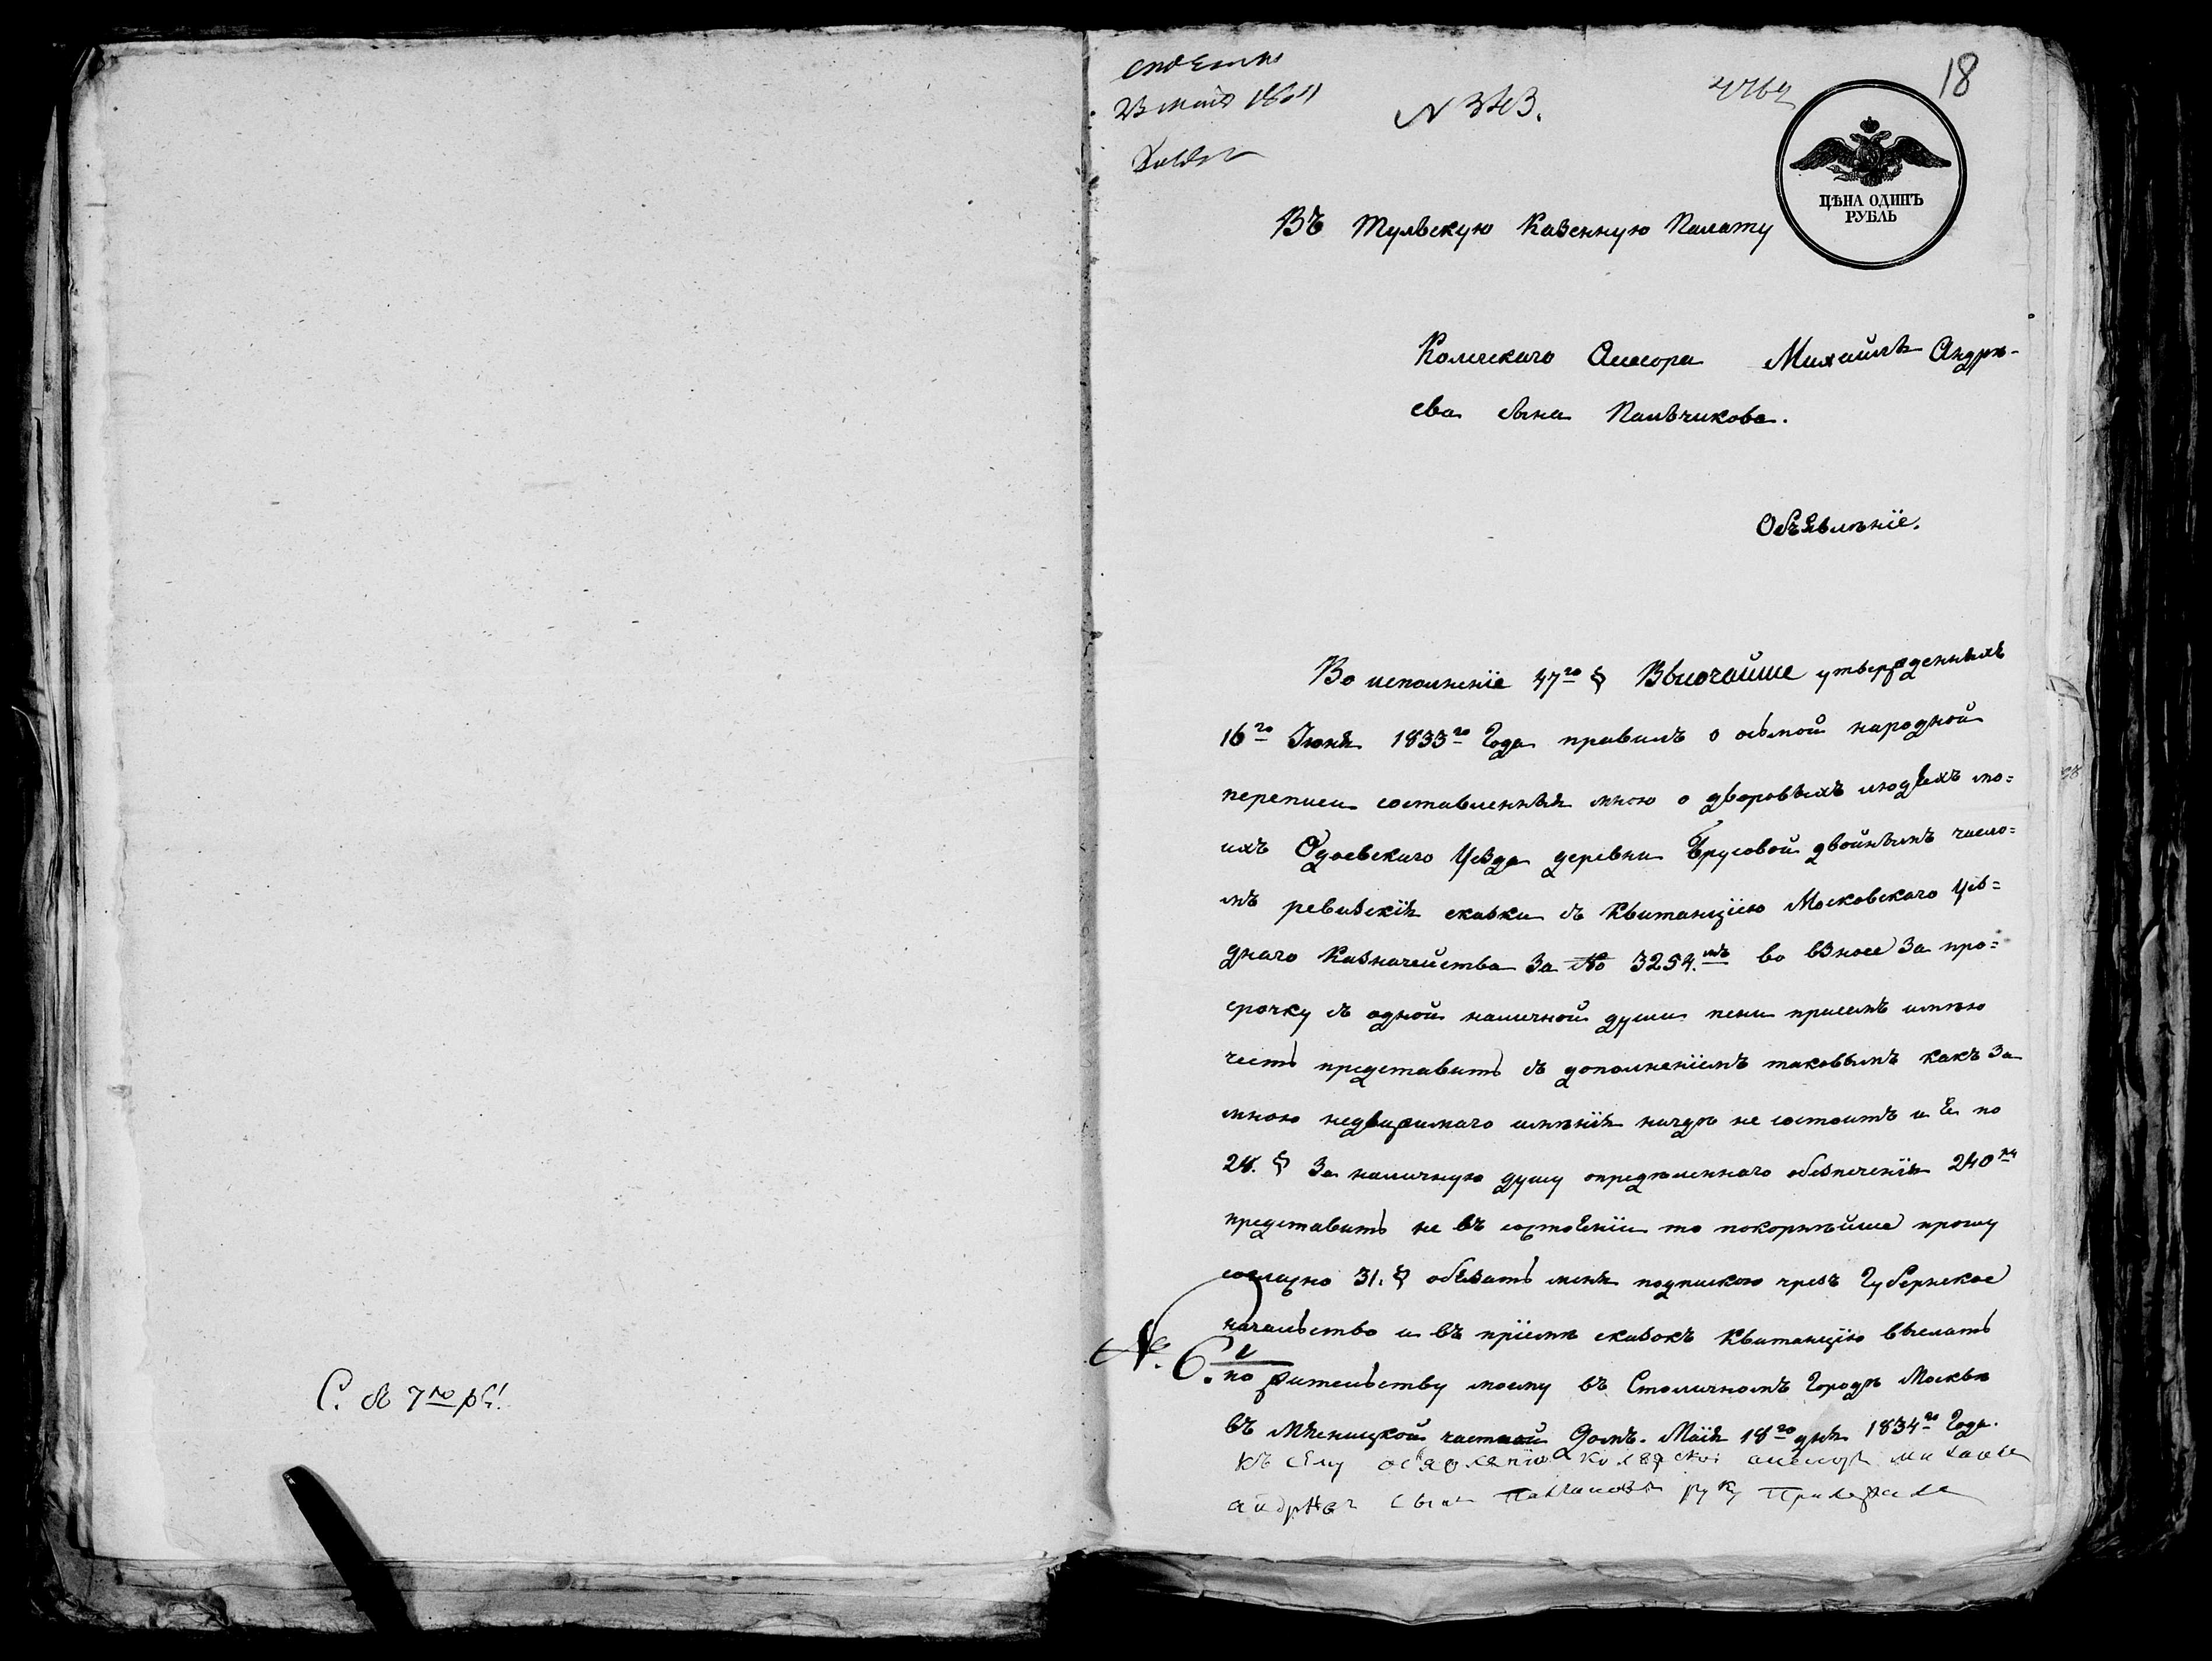 23 мая 1834
N 343.
4762
18
ЦѢНА ОДИНЪ
РУБЛЬ
Въ Тульскую Казенную Палату
Колежскаго Ассесора Михайлы Андрѣ-
ева сына Пальчикова.
Объявлѣніе.
Во исполненіе 47го § Высочайше утвержденныхъ
16го Іюня 1833го Года правилъ о осьмой народной
переписи составленныя мною о дворовыхъ людяхъ мо=
ихъ Одоевскаго Уѣзда деревни Брусовой двойнымъ число=
мъ ревизскія сказки съ Квитанціею Московскаго Уѣз=
днаго Казначейства За № 3254.мъ во взносе За про=
срочку съ одной наличной души пени присемъ имѣю
честь представить съ дополненіемъ таковымъ какъ За
мною недвижимаго имѣнія нигдѣ не состоитъ и Я по
28. § За наличную душу опредѣленнаго обезпеченія 240ти
представить не въ состояніи то покорнѣйше прошу
согласно 31. § обязать меня подпискою чрезъ Губернское
начальство и въ пріемѣ сказокъ Квитанцію выслать
№. 6.
по жительству моему въ Столичномъ Городѣ Москвѣ
въ Мясницкой частной Домъ. Маія 18го дня 1834го Года.
къ сему объявленію колежской асесоръ михаила
андрѣевъ сынъ Пальчиковъ руку Приложила
С. съ 7го